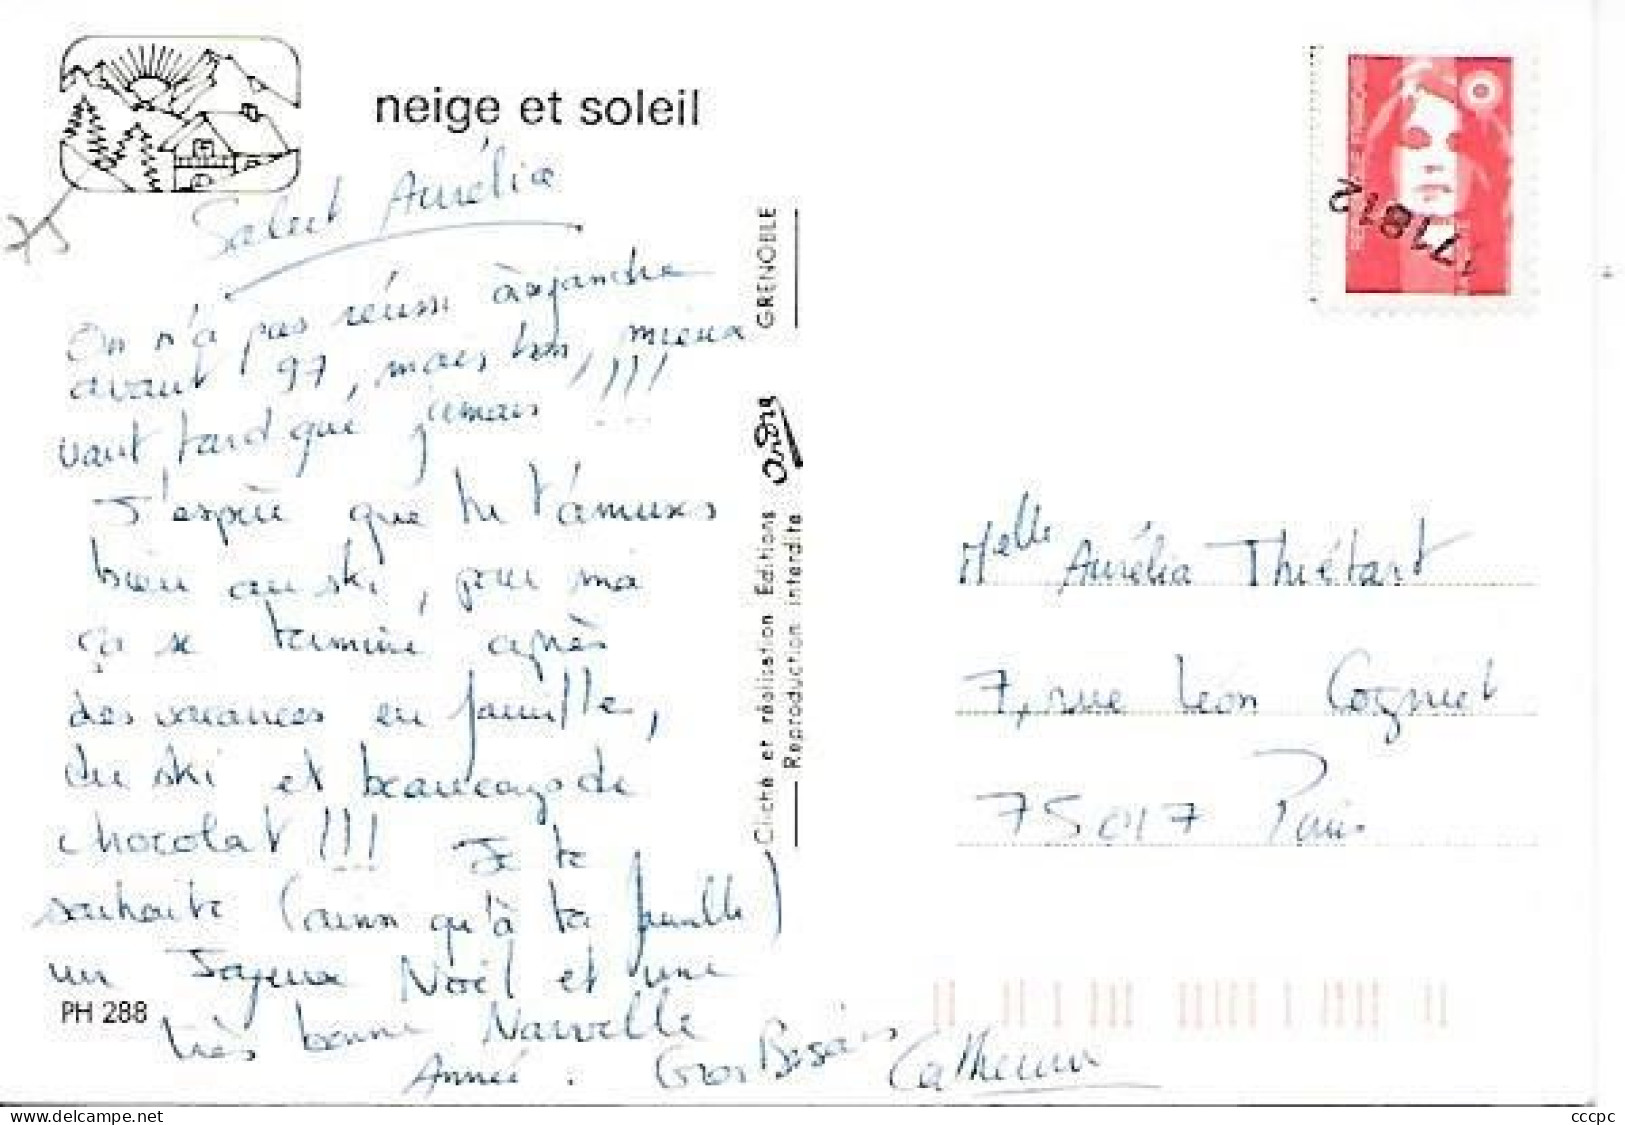 neige et soleil
75
Salut Aurélia
On n'a pas réussi à
avant 97, mais bon, mieux
vaut tard que jamais !!!
J'espère que tu t'amuses
bien au ski, pour ma
ça se termine après
des vacances en famille,
du ski et beaucoup de
chocolat !!! Je te
souhaite (ainsi qu'à ta famille)
un Joyeux Noël et une
très bonne Nouvelle
Année. Gros Bisous
Catherine
PH 288
Cliché et réalisation Editions andré GRENOBLE
Reproduction interdite
771812
Melle Aurélia Thiétart
7, rue Léon Cogniet
75017 Paris
cccpc
delcampe.net